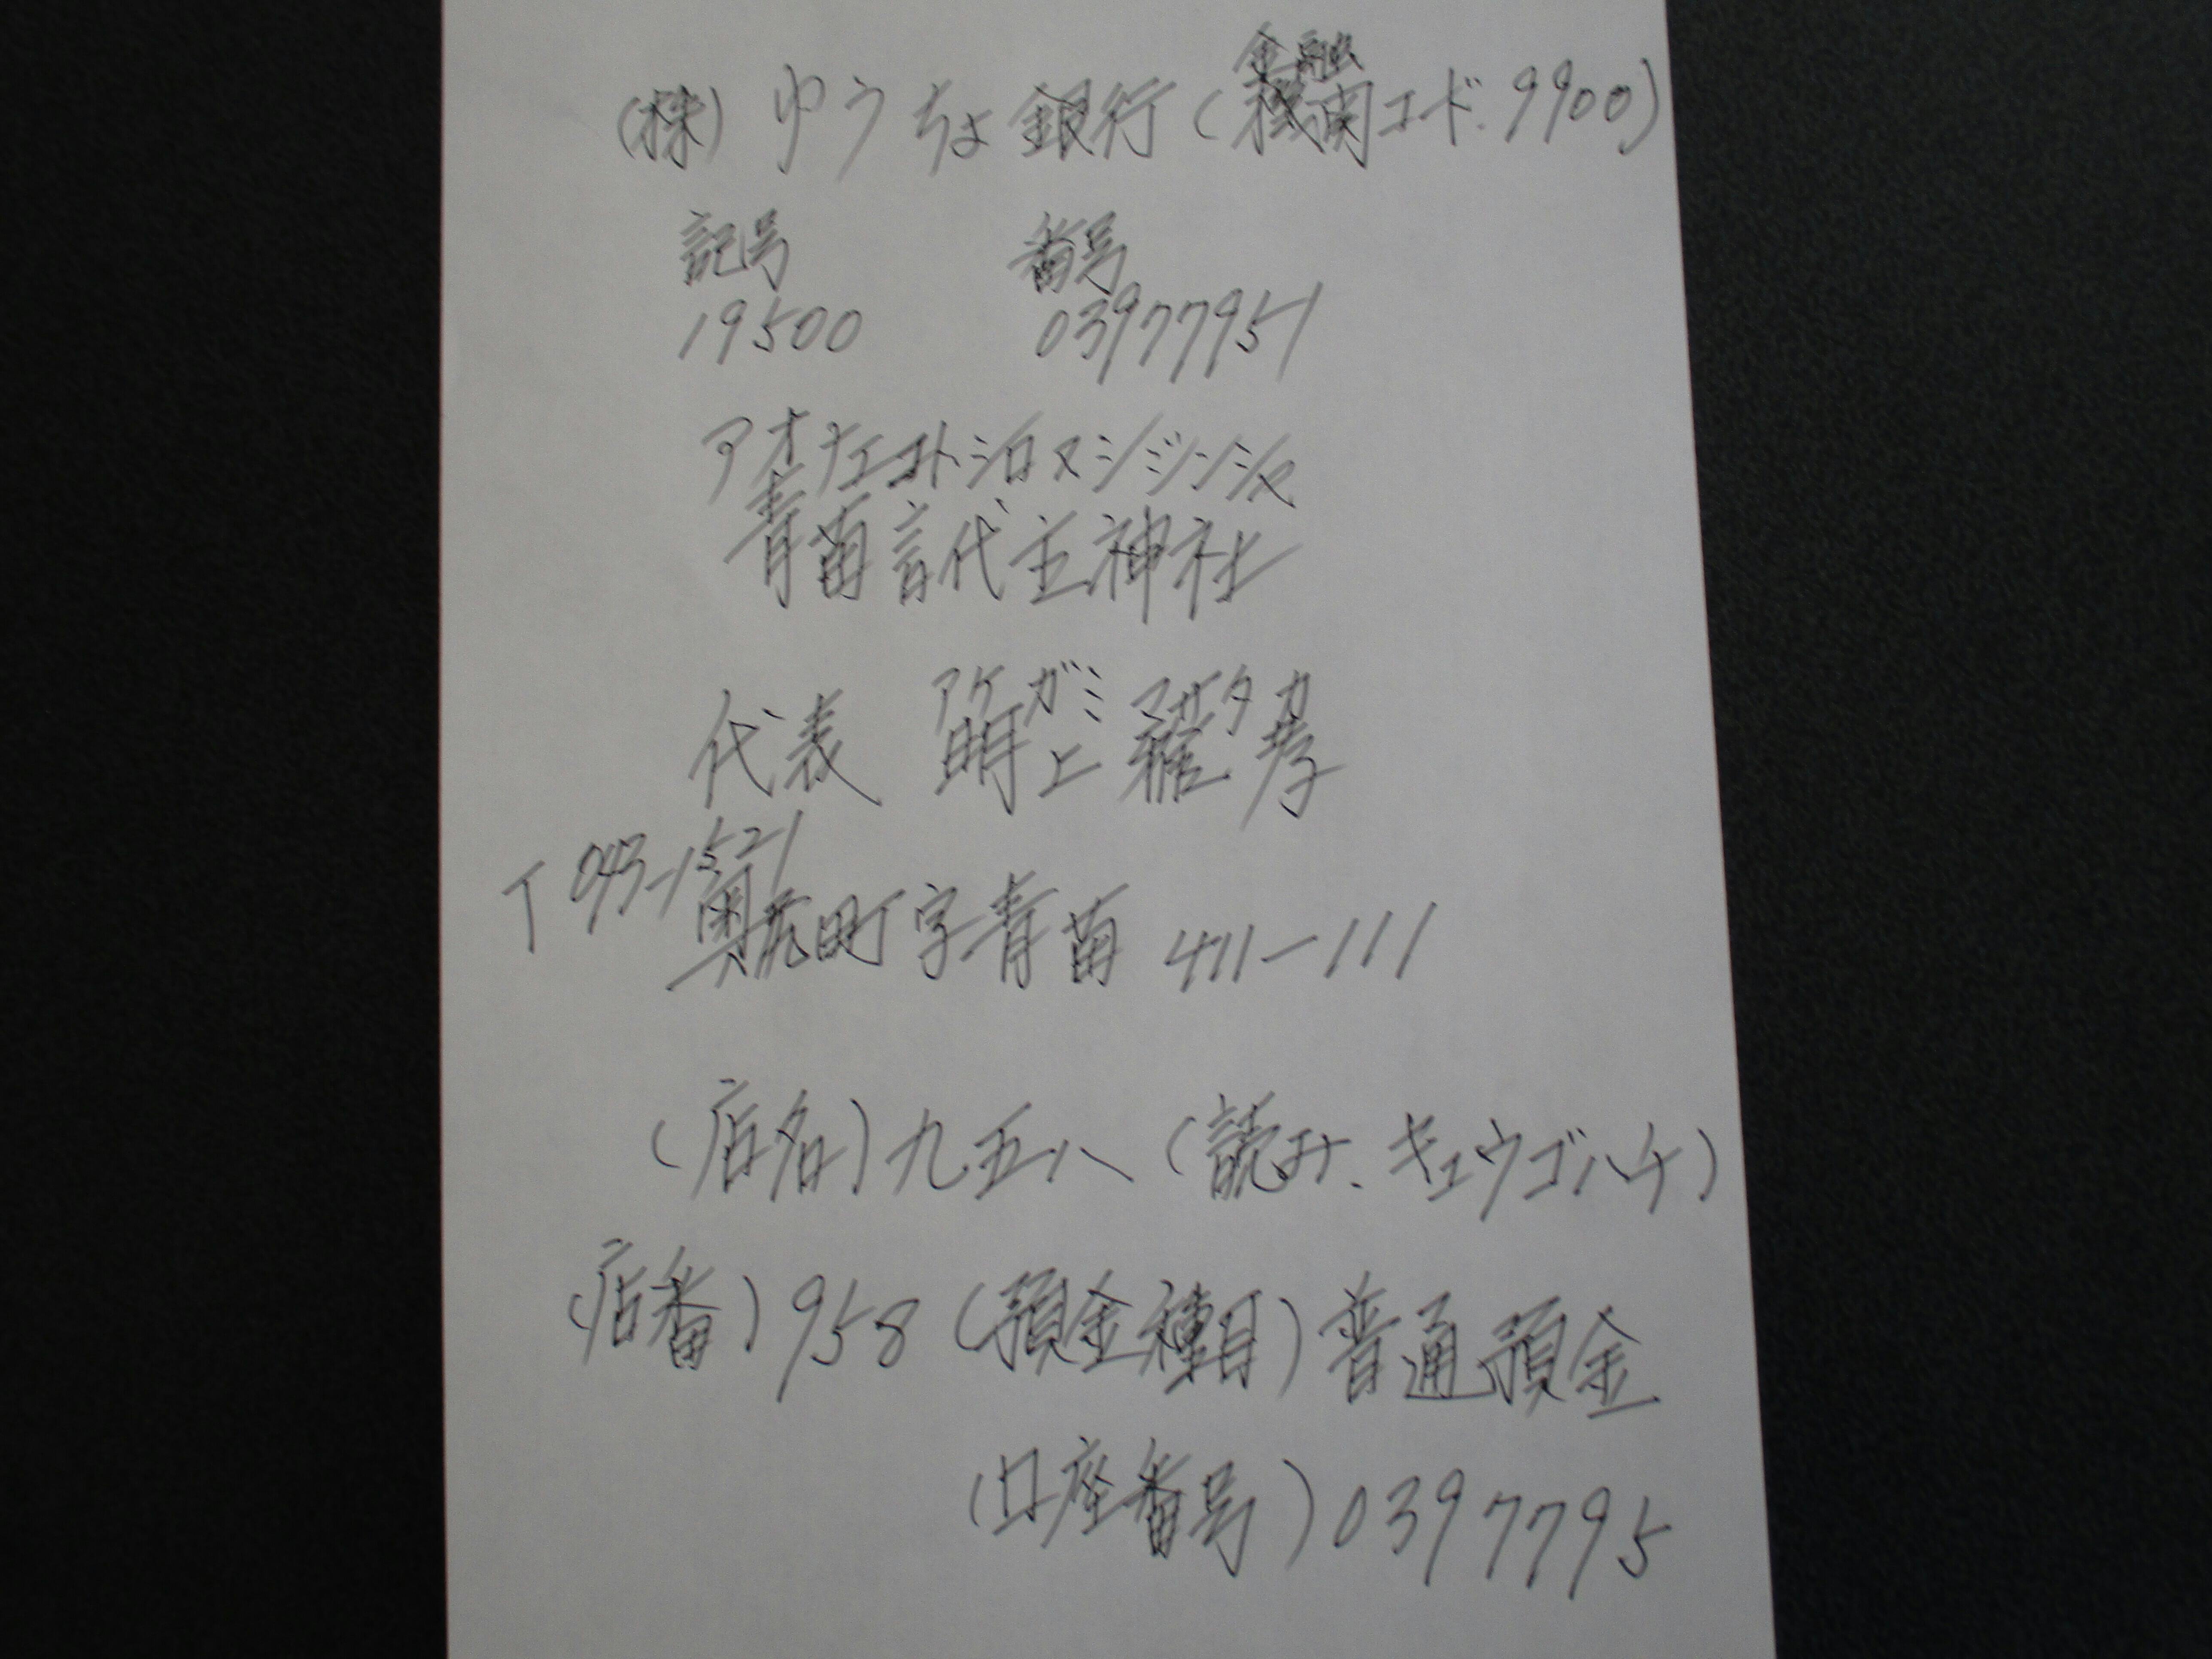 (株)ゆうちょ銀行(金融機関コード.9900)
記号 番号
19500 03977951
アオナエコトシロヌシジンジャ
青苗言代主神社
アケガミ マサタカ
代表 明上雅孝
〒043-1521
奥尻町字青苗411-111
(店名)九五八(読み.キュウゴハチ)
(店番)958(預金種目)普通預金
(口座番号)0397795